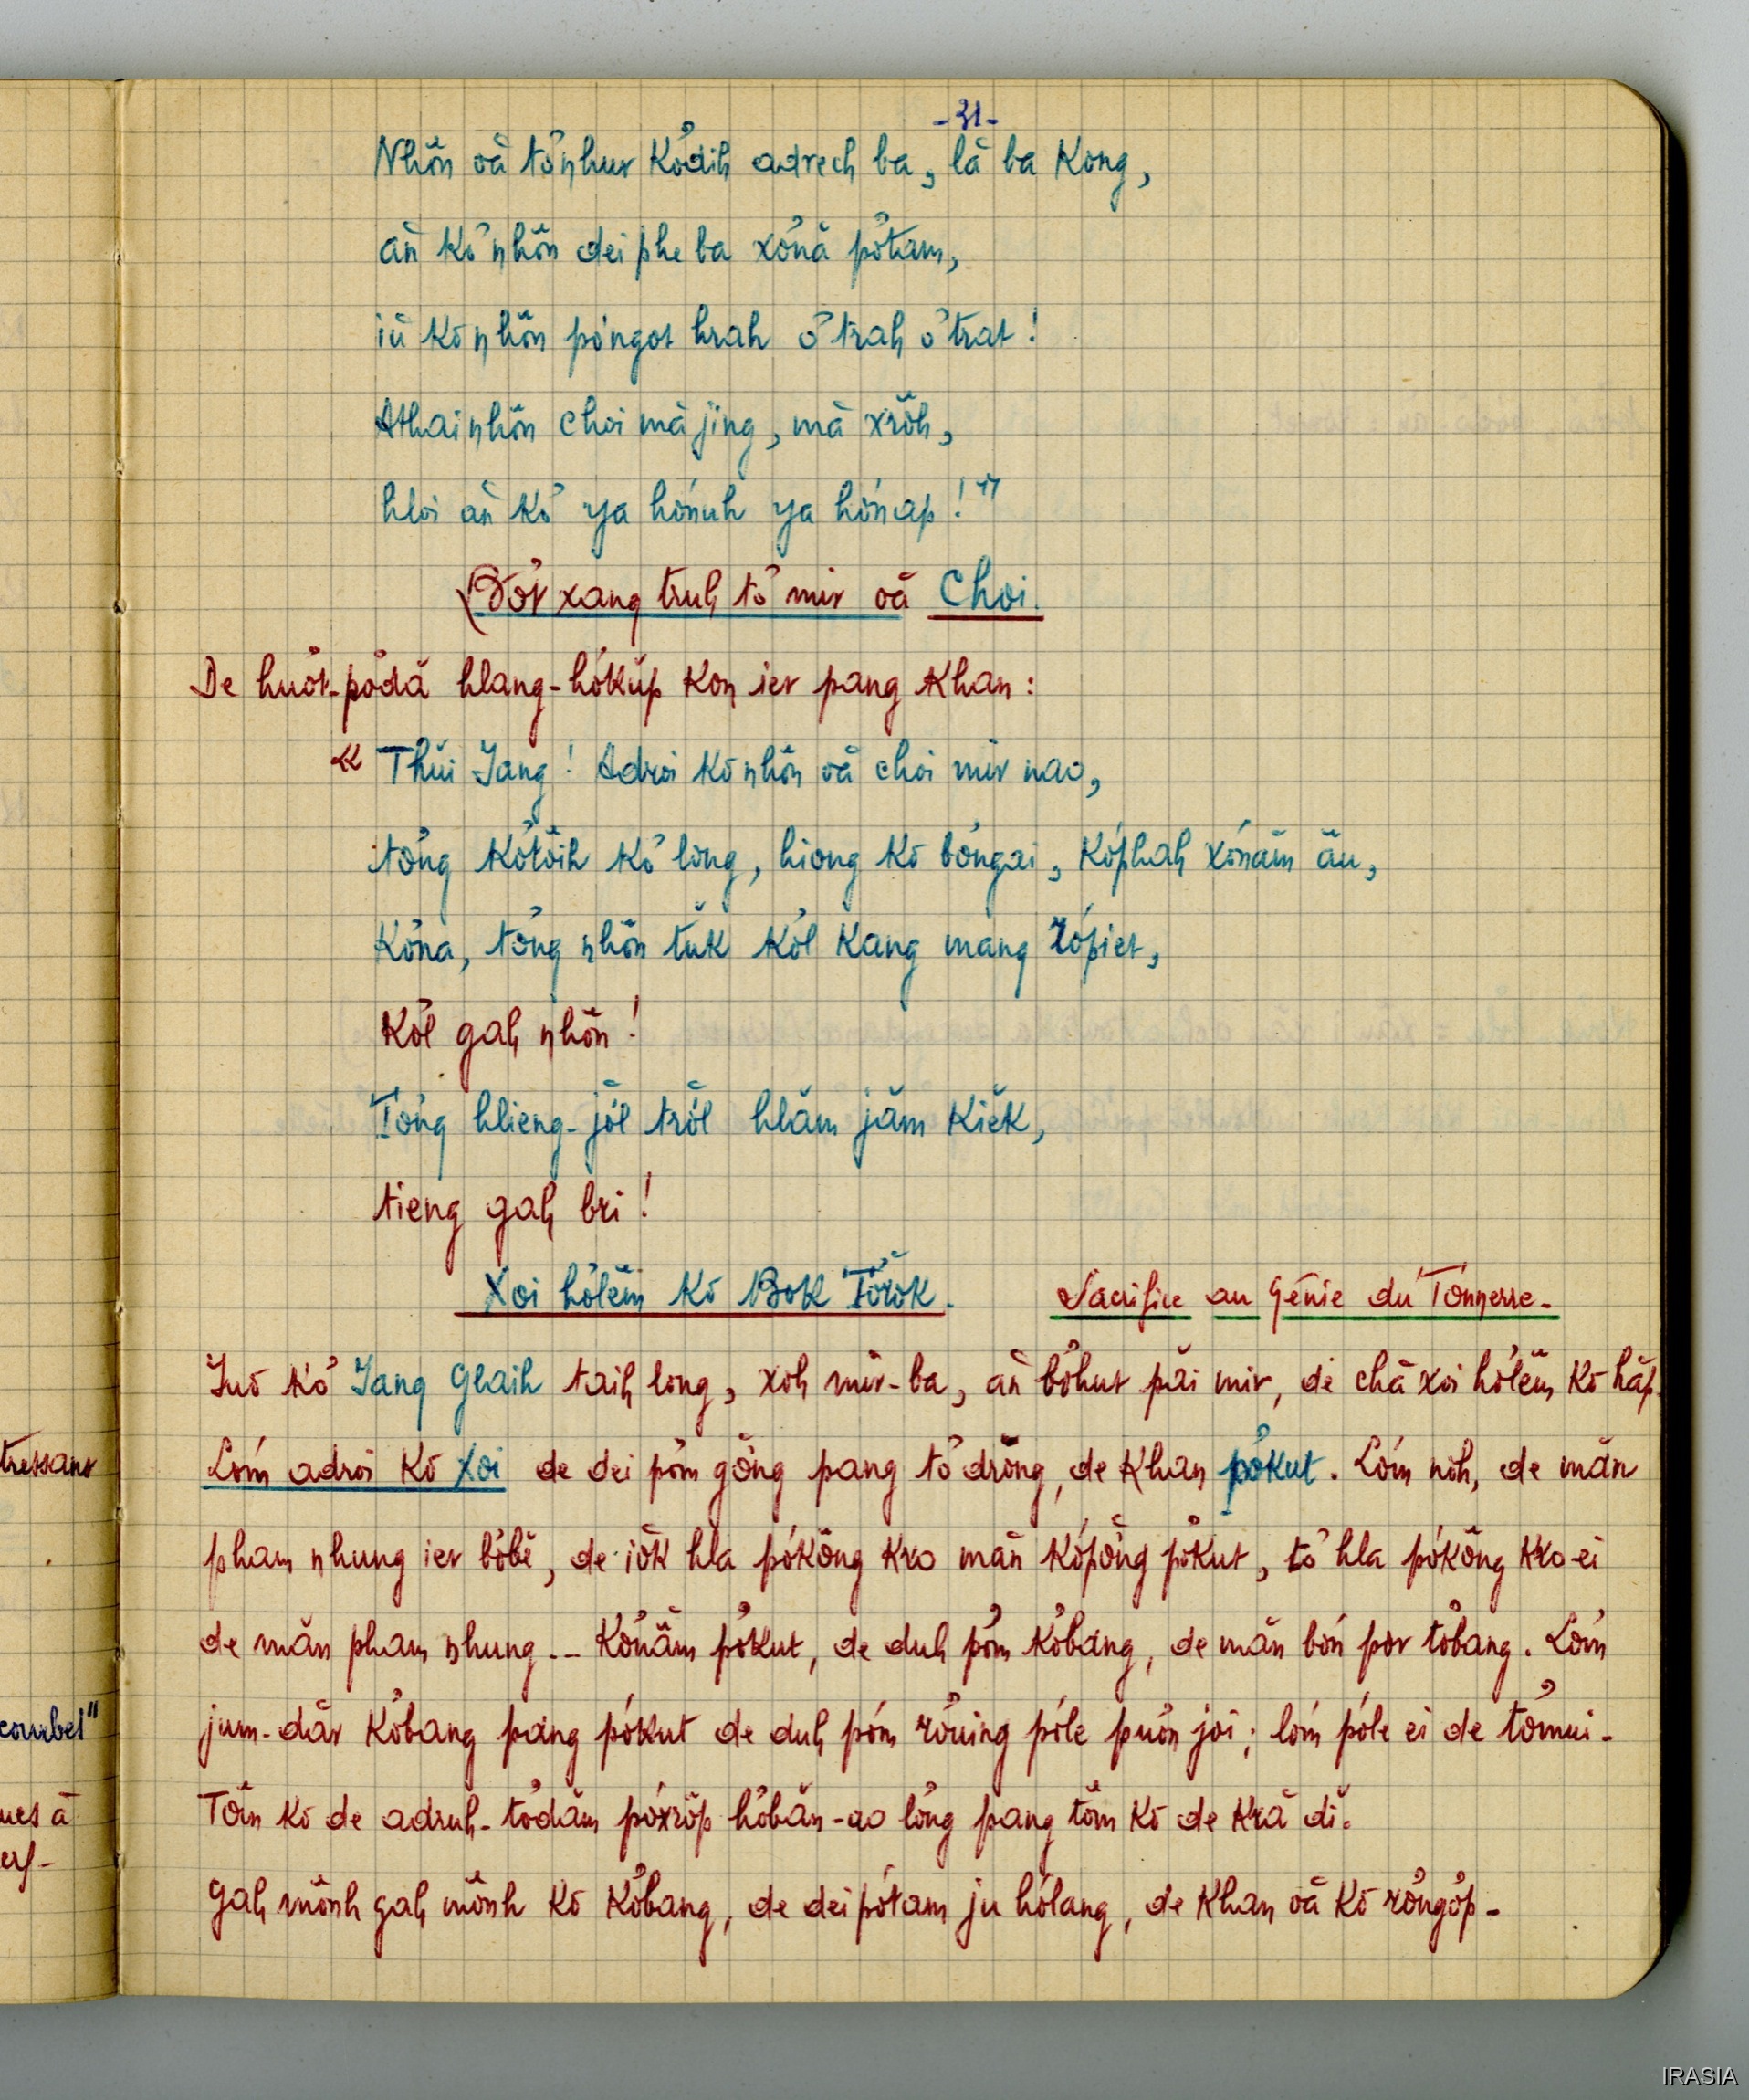 -31-
Nhôn oă tơ̆nhur kơ̆dih adrech ba, lă ba kong,
ăn kơ̆ nhôn dei phe ba xơnă pơtam,
iŭ kơ nhôn pơngot hrah ơ̆ trah ơ̆ trat !
Athai nhôn choi mă jing, mă xrŏh,
hloi ăn kơ̆ ya hơnuh ya hơnap ! "
Đơ̆r xang truh tơ̆ mir oă choi.
De huơt-pơdă hlang-hơkŭp kon ier pang khan :
« Thŭi Jang ! Adroi kơ nhôn oă choi mir nao,
tơ̆ng kơtơ̆ih kơ̆ long, hiong kơ bơngai, kơphah xơnăm ău,
Kơna, tơ̆ng nhôn tŭk kơ̆l kang mang rơpiet,
kơ̆l gah nhôn !
Tơ̆ng hlieng-jơ̆l trơ̆l hlăm jăm kiĕk,
tieng gah bri !
Xoi hơlĕm kơ Bok Tơrŏk. Sacrifice au Génie du Tonnerre.
Juơ kơ̆ Jang Glaih taih long, xoh mir-ba, ăn bơhut păi mir, de chă xoi hơlĕm kơ hăp.
Lơ̆m adroi kơ xoi de dei pơ̆m gơ̆ng pang tơ̆drŏng, de khan pơkut. Lơ̆m noh, de măn
pham nhung ier bơbĕ, de iŏk hla pơkŏng kro măn kơpơ̆ng pơkut, tơ̆ hla pơkŏng kro ei
de măn pham nhung... Kơnăm pơkut, de duh pơ̆m kơbang, de măn bơ̆n por tơbang. Lơ̆m
jum-dăr kơbang pang pơkut de duh pơ̆m rơuing pơle puơn joi ; lơ̆m pơle ei de tơmui.
Tơ̆m kơ de adruh-tơdăm pơxrơ̆p hơbăn-ao lơ̆ng pang tơ̆m kơ de kră dĭ.
Gah mônh gah mônh kơ kơbang, de dei pơtam ju hơlang, de khan oă kơ rơngơ̆p.
tressant
courbes"
ues à
erf-
IRASIA